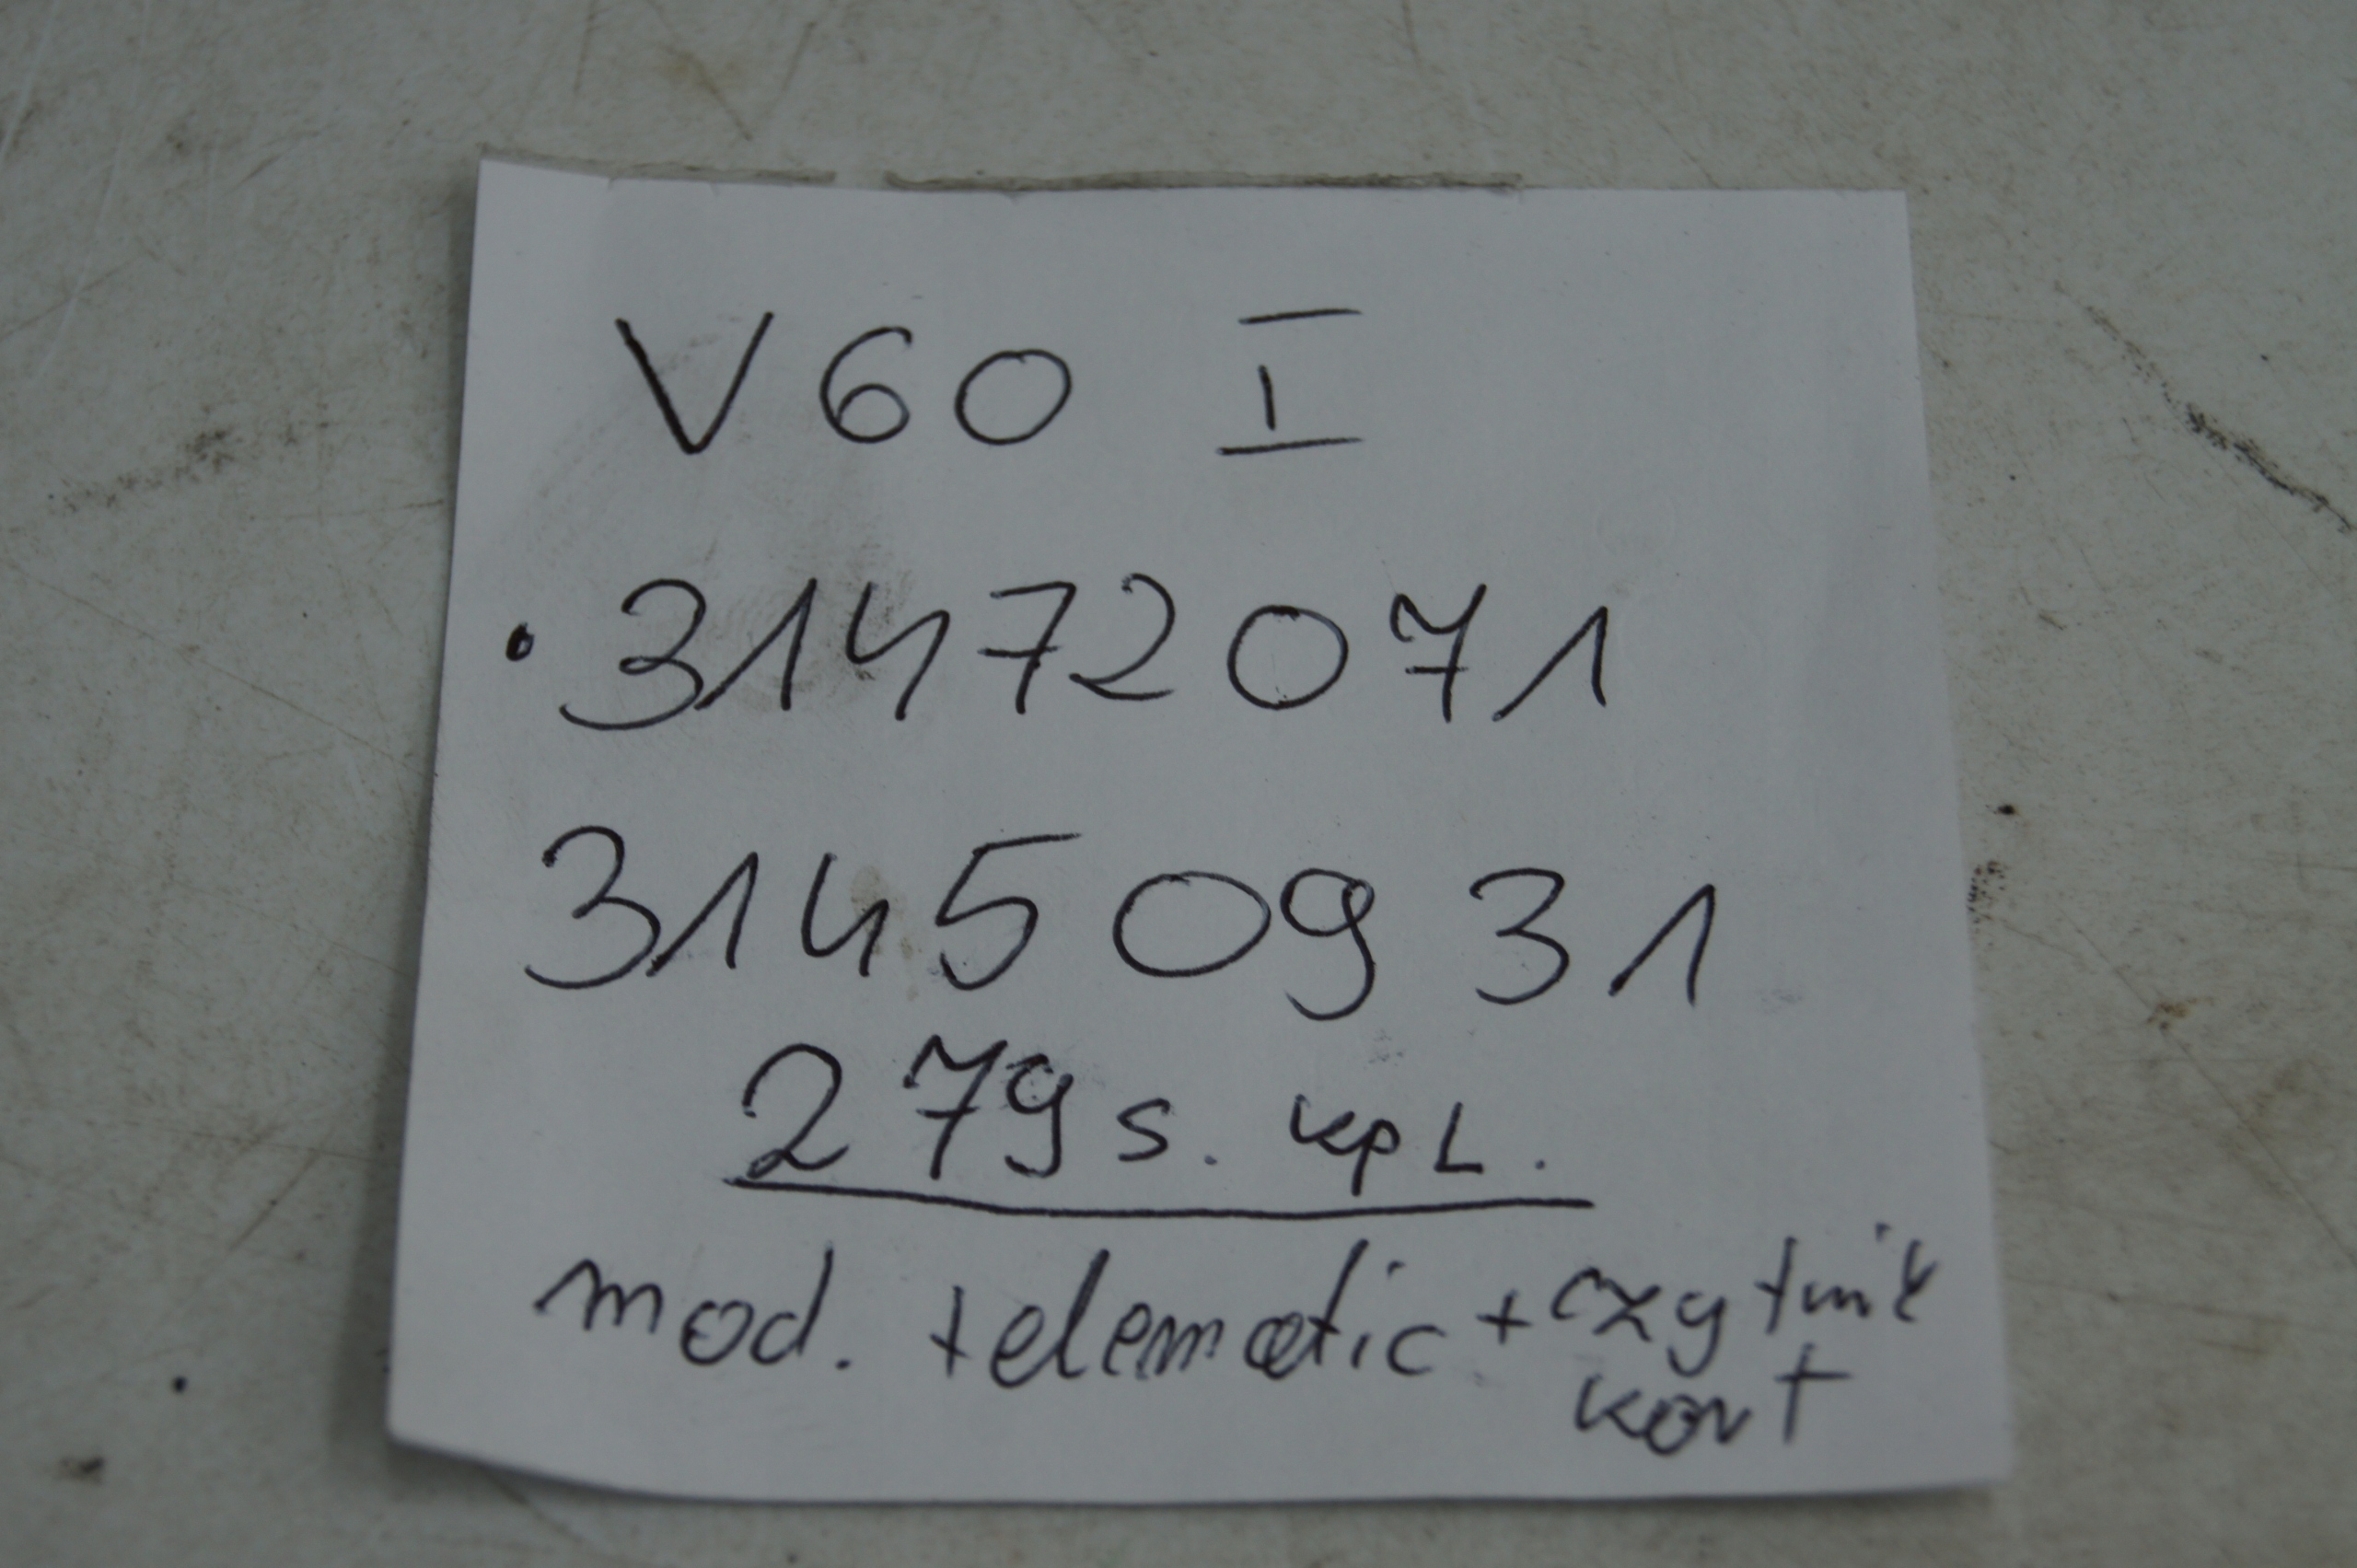 V60 I
. 31472071
31450931
279 s. kpl.
mod. telematic + czytnik
kart